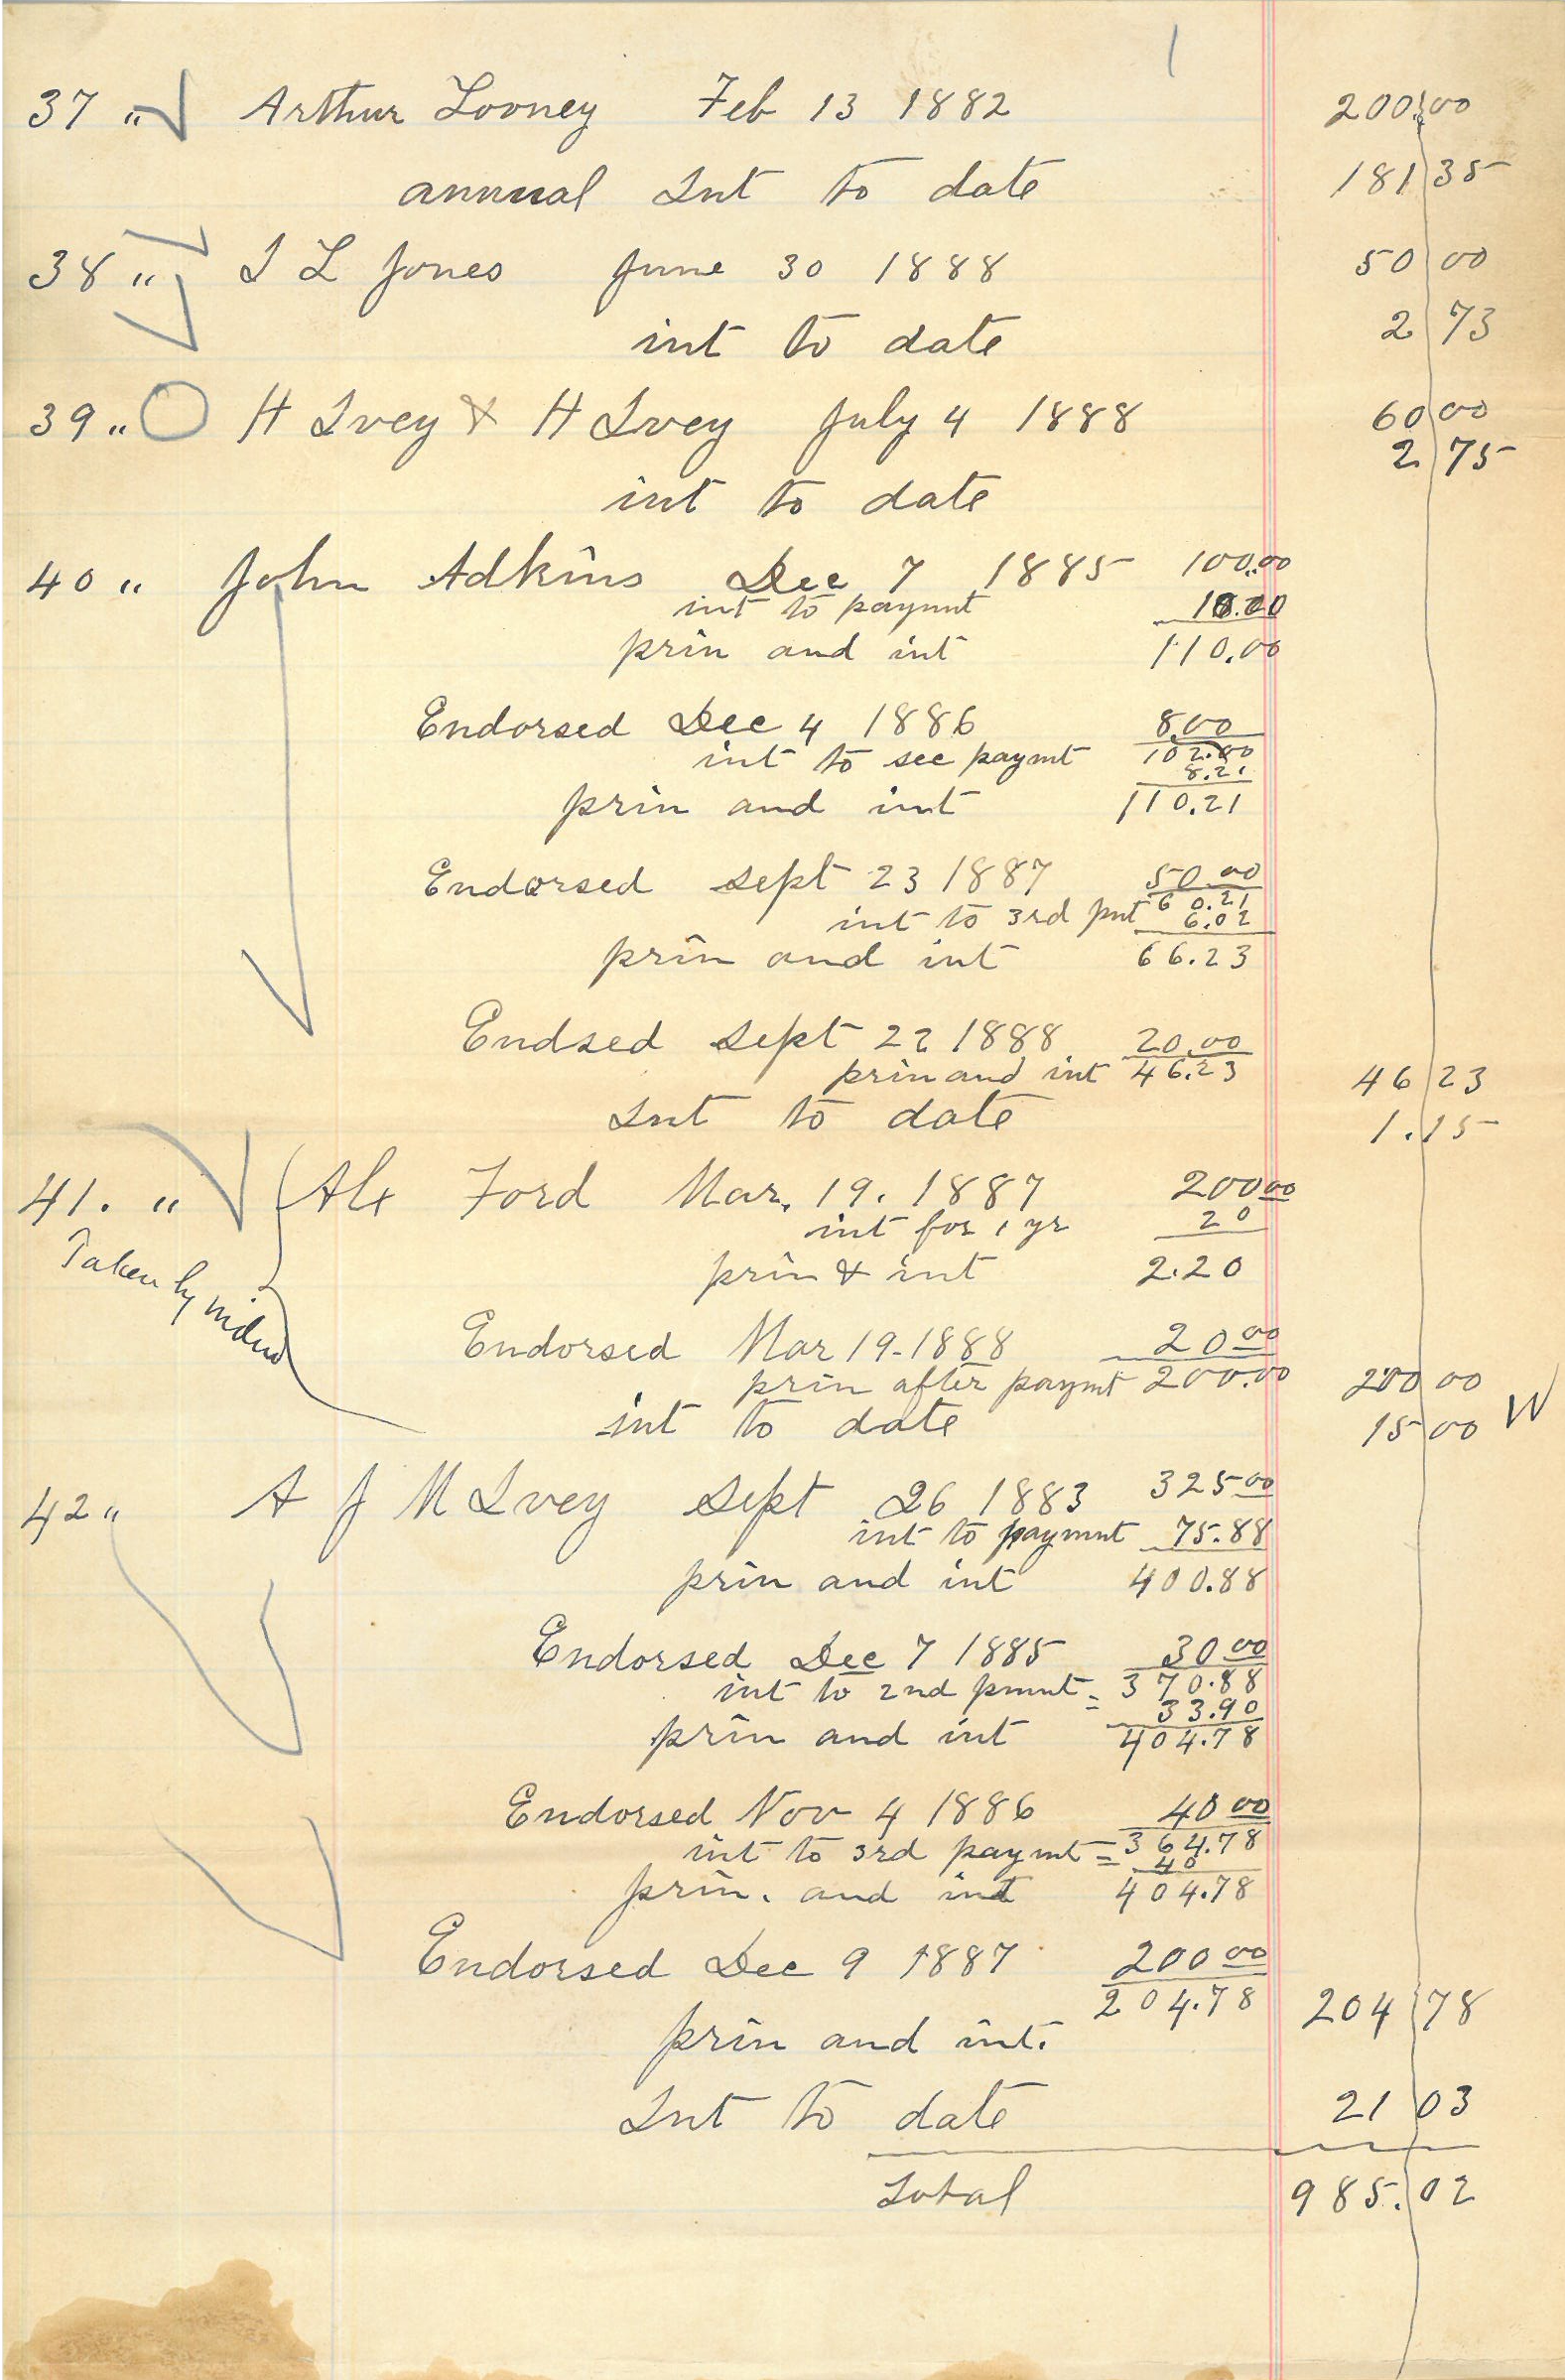 1
37 " Arthur Looney Feb 13 1882 200.00
annual Int to date 181 35
38 " I L Jones June 30 1888 50 00
int to date 2 73
39 " H Ivey & H Ivey July 4 1888 60 00
2 75
int to date
40 " John Adkins Dec 7 1885 100.00
int to paymnt 10.00
prin and int 110.00
Endorsed Dec 4 1886 8.00
int to sec paymt 102.00
8.21
prin and int 110.21
Endorsed Sept 23 1887 50.00
60.21
int to 3rd pnt 6.02
prin and int 66.23
Endsed Sept 22 1888 20.00
prin and int 46.23 46 23
Int to date 1.15
41. " Alx Ford Mar. 19. 1887 200 00
int for 1 yr 20
Taken by
prin & int 2.20
Endorsed Mar 19-1888 20 00
prin after paymt 200.00 200 00
int to date 15 00 W
42 " A J M Ivey Sept 26 1883 325 00
int to paymnt 75.88
prin and int 400.88
Endorsed Dec 7 1885 30 00
int to 2nd pmnt = 370.88
33.90
prin and int 404.78
Endorsed Nov 4 1886 40 00
int to 3rd paymt = 364.78
40
prin. and int 404.78
Endorsed Dec 9 1887 200 00
204.78 204 78
prin and int.
Int to date 21 03
Total 985.02